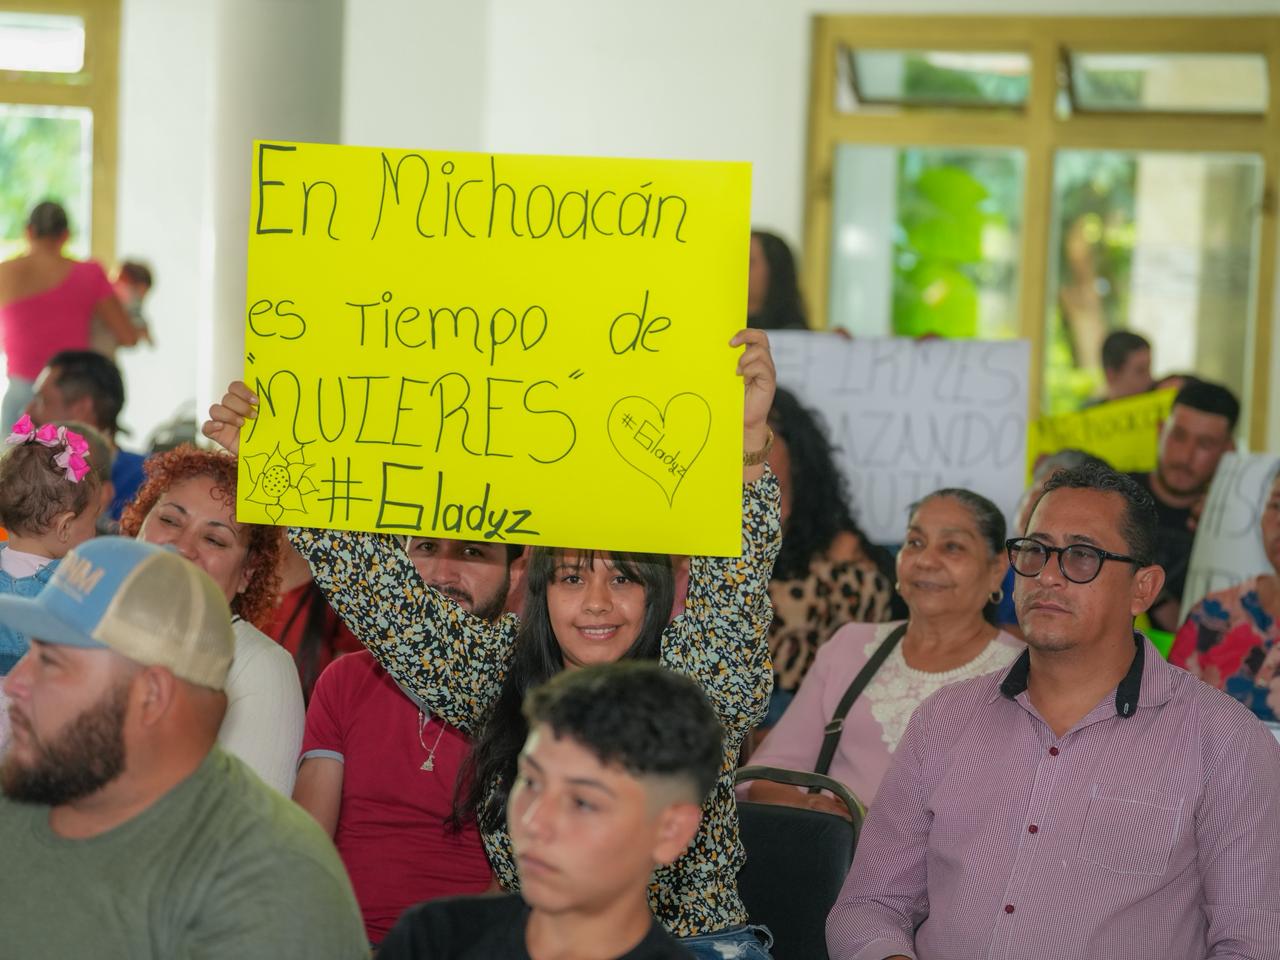 En Michoacán
es Tiempo de
"MUJERES"
#Gladyz
#Gladyz
#FIRMES
Michoacán